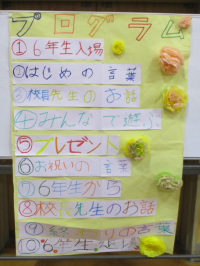 プログラム
①6年生入場
②はじめの言葉
③校長先生のお話
④みんなで遊ぶ
⑤プレゼント
⑥お祝いの言葉
⑦6年生から
⑧校長先生のお話
⑨終わりの言葉
⑩6年生退場